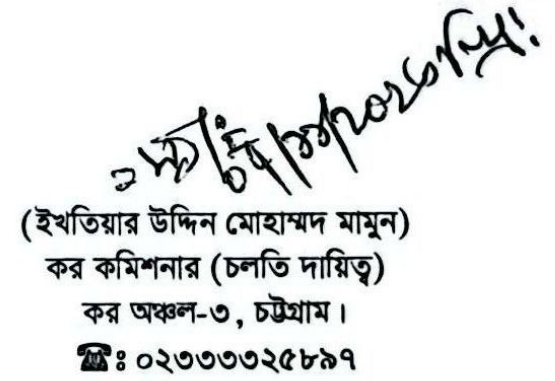 (ইখতিয়ার উদ্দিন মোহাম্মদ মামুন)
কর কমিশনার (চলতি দায়িত্ব)
কর অঞ্চল-৩, চট্টগ্রাম।
☎ঃ ০২৩৩৩৩২৫৮৯৭